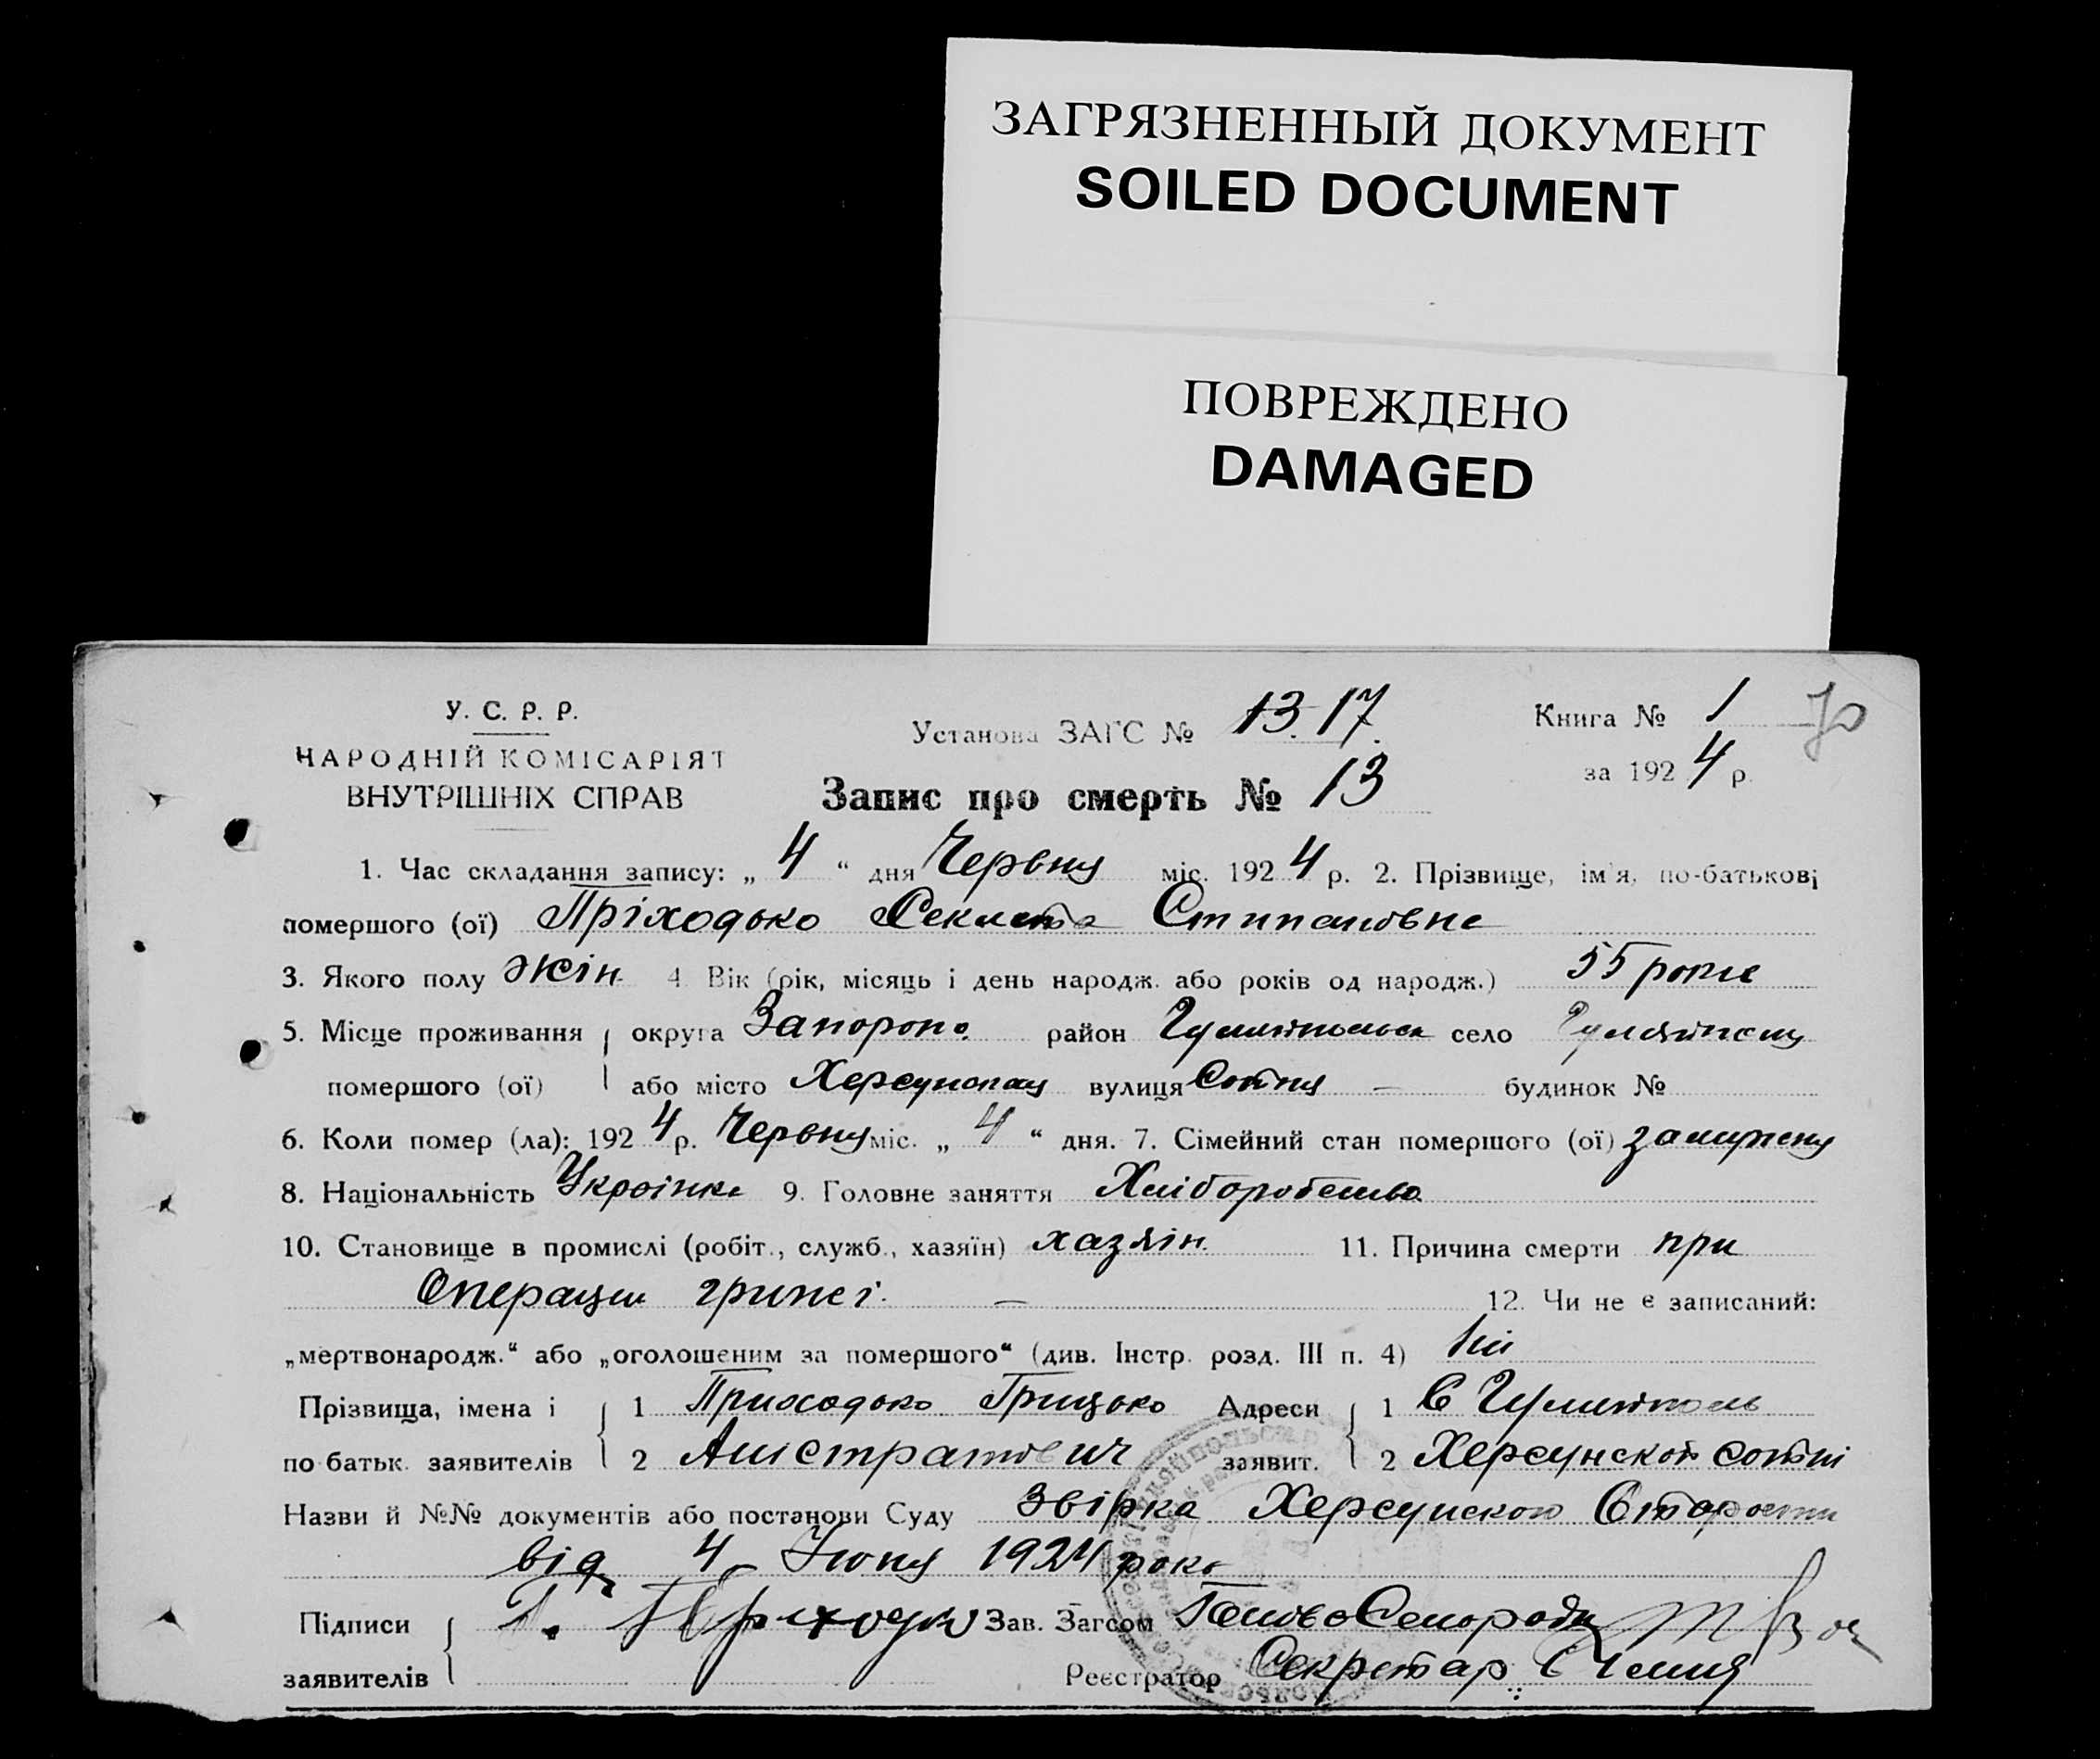 ЗАГРЯЗНЕННЫЙ ДОКУМЕНТ
SOILED DOCUMENT
ПОВРЕЖДЕНО
DAMAGED
У. С. Р. Р.
НАРОДНІЙ КОМІСАРІЯТ
ВНУТРІШНІХ СПРАВ
Установа ЗАГС № 13. 17.
Книга № 1
70
за 1924 р.
Запис про смерть № 13
1. Час складання запису: „ 4 “ дня Червня міс. 1924 р. 2. Прізвище, ім'я, по-батькові
помершого (ої) Пріходько Секлета Стипановна
3. Якого полу жін. 4. Вік (рік, місяць і день народж. або років од народж.) 55 років
5. Місце проживання округа Запороп. район Гуляйпольск село Гуляйполя
помершого (ої) або місто Херсунская вулиця Сотня — будинок №
6. Коли помер (ла): 1924 р. Червня міс. „ 4 “ дня. 7. Сімейний стан помершого (ої) замужня
8. Національність Украінка 9. Головне заняття Хліборобство
10. Становище в промислі (робіт., служб., хазяїн) хазяін. 11. Причина смерти при
Операции грижі. — 12. Чи не є записаний:
„мертвонародж.“ або „оголошеним за помершого“ (див. Інстр. розд. III п. 4) Ні
Прізвища, імена і 1 Приходько Грицько Адреси 1 С Гуляйполь
по батьк. заявителів 2 Алистратович заявит. 2 Херсунской сотні
Назви й №№ документів або постанови Суду Звірка Херсунскою Старости
від 4 Июня 1924 року
Підписи Г. Приходько Зав. Загсом
заявителів Реєстратор Секретар